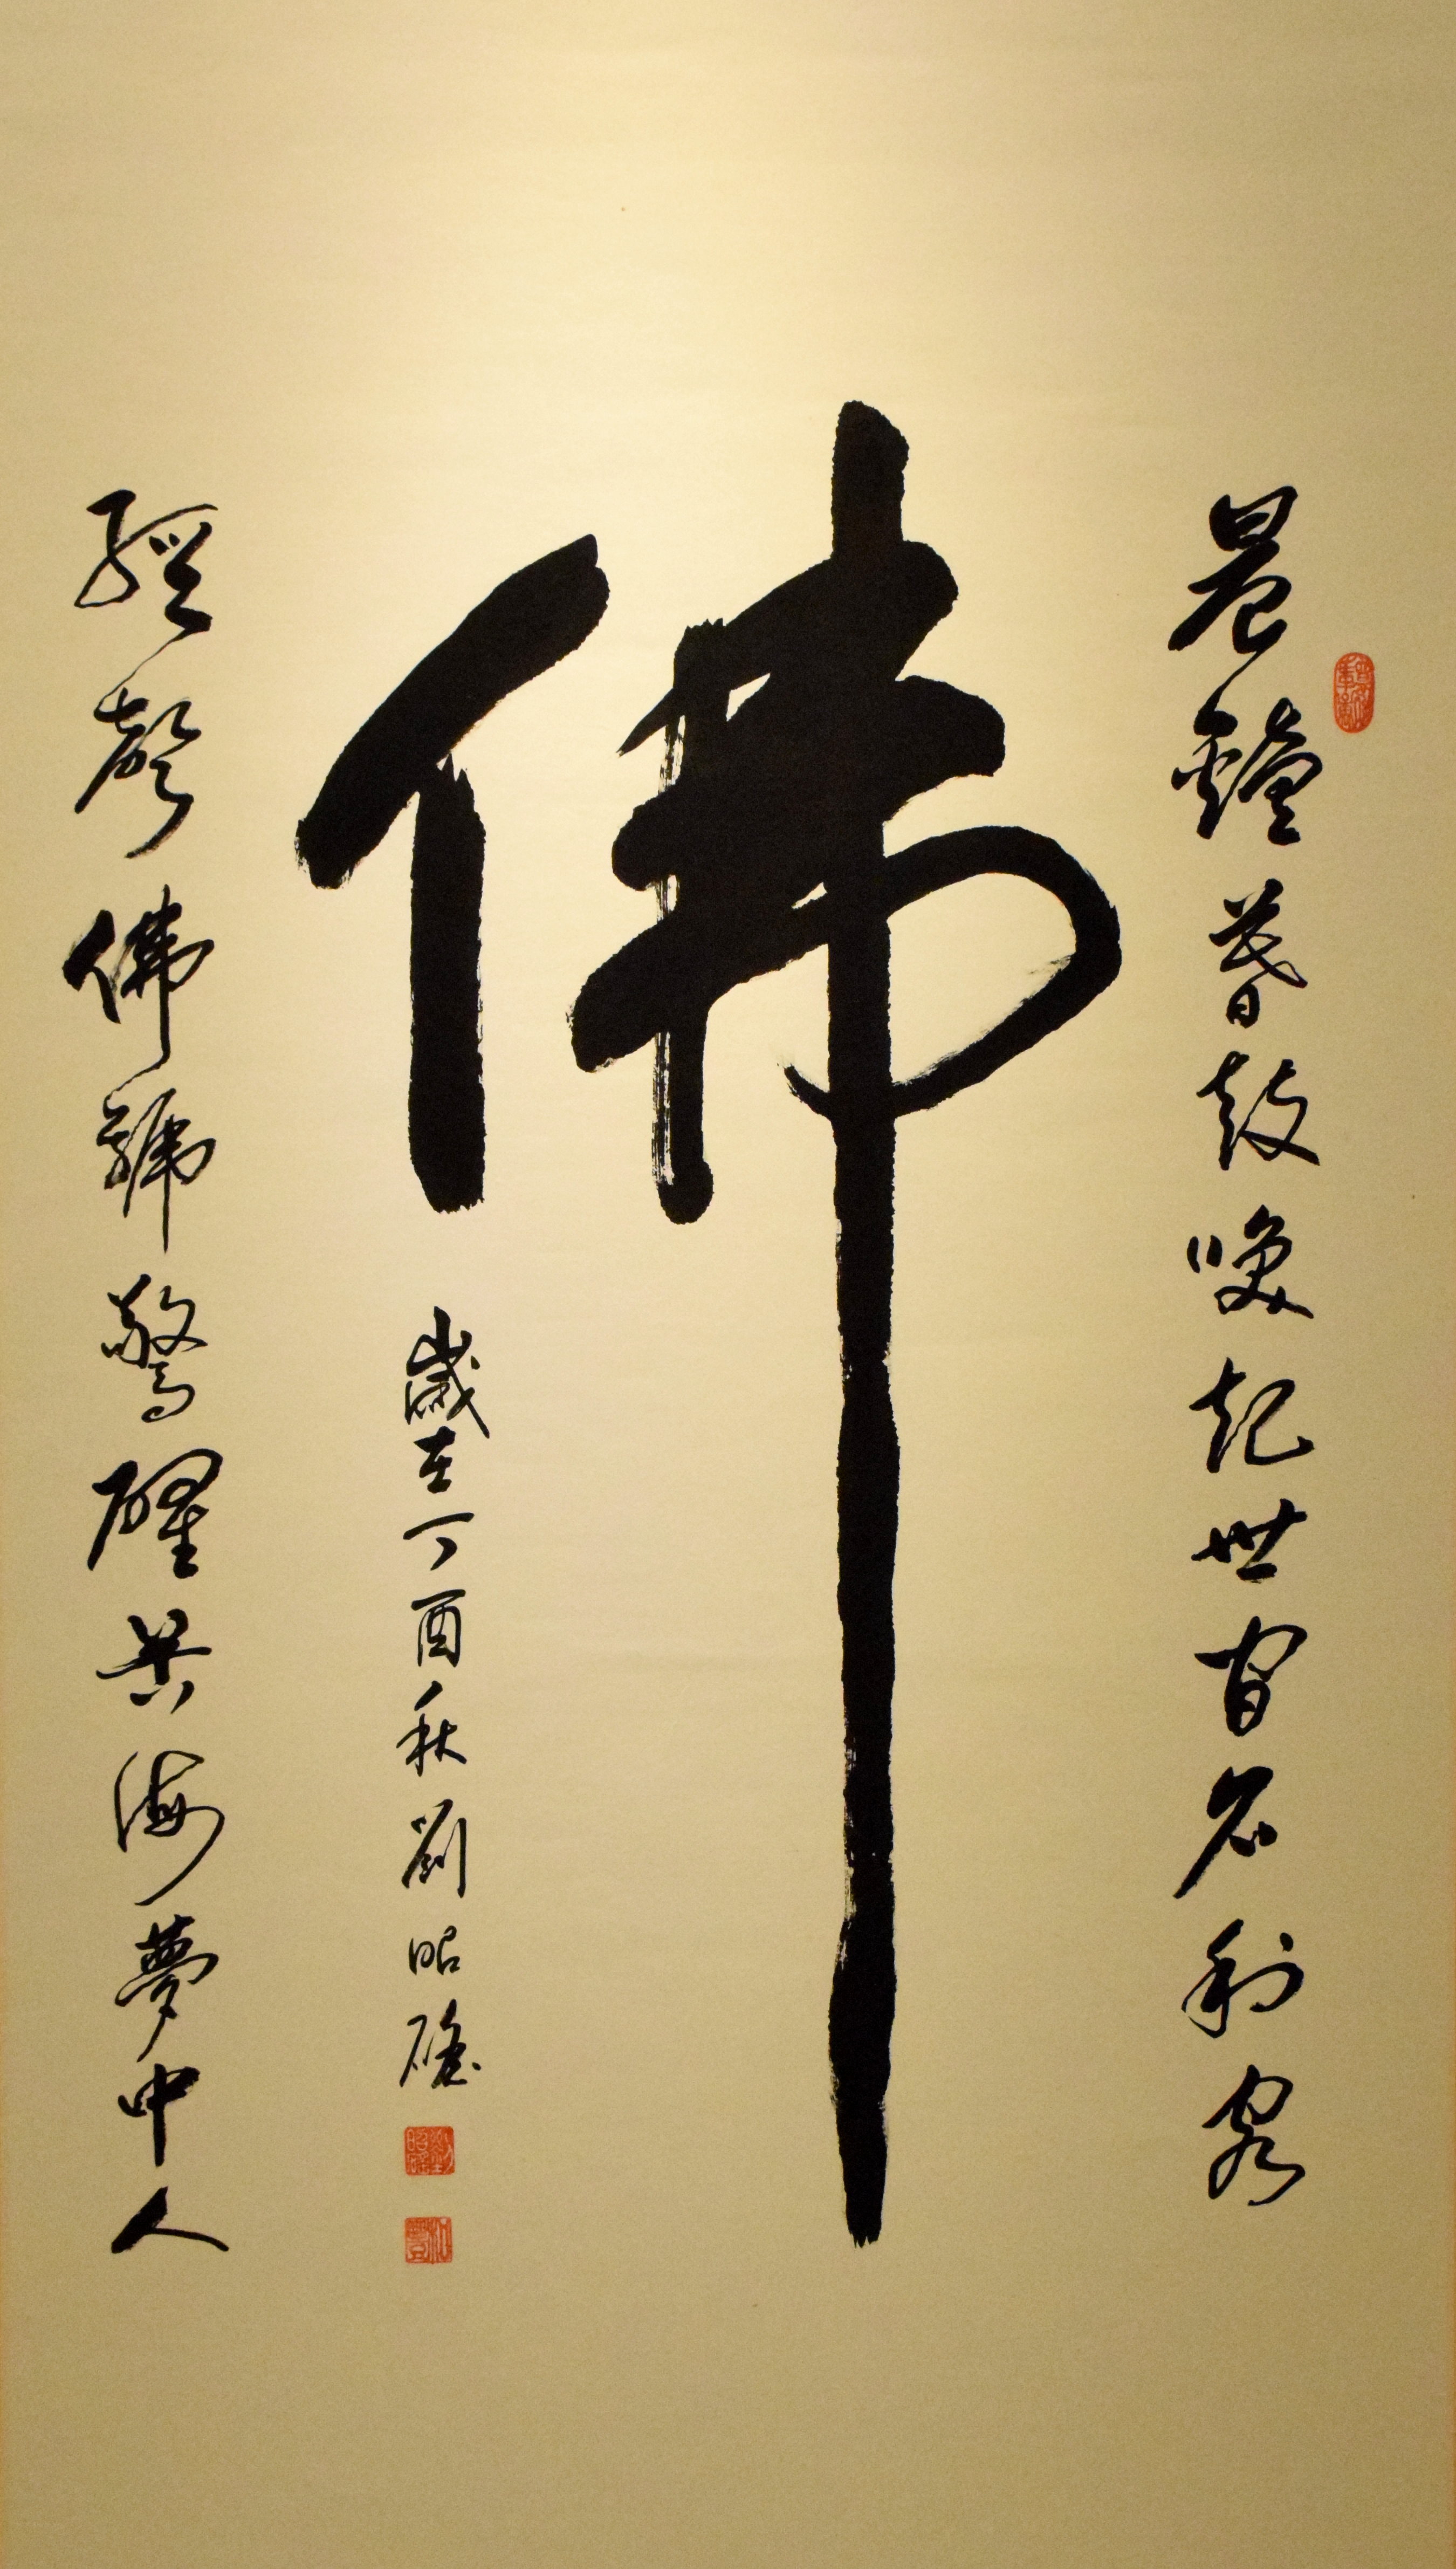 晨鐘暮鼓喚起世間名利客
佛
歲在丁酉秋劉昭
經聲佛號驚醒苦海夢中人